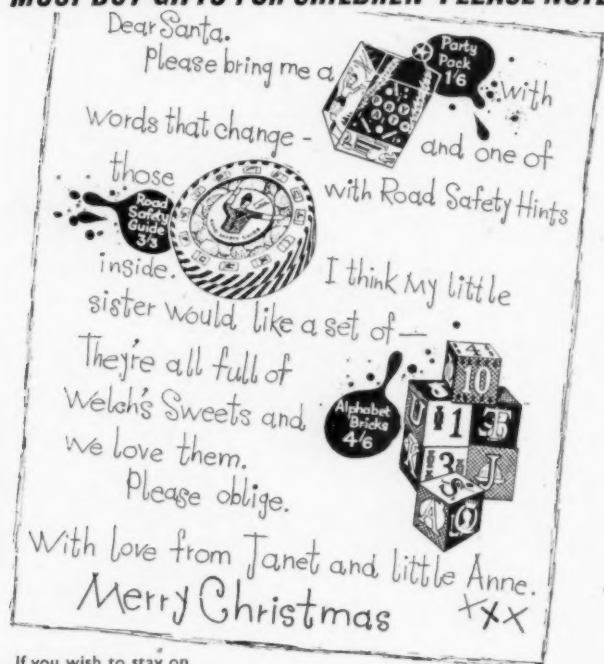 MUST BUY GIFTS FOR CHILDREN PLEASE NOTE
Dear Santa.
Please bring me a
Party
Pack
1'6
with
words that change -
and one of
those
with Road Safety Hints
Road
Safety
Guide
3/3
inside.
I think my little
sister would like a set of —
They're all full of
Welch's Sweets and
we love them.
Please oblige.
Alphabet
Bricks
4/6
4
10
U
1
3
J
S
A
With love from Janet and little Anne.
Merry Christmas
XXX
If you wish to stay on